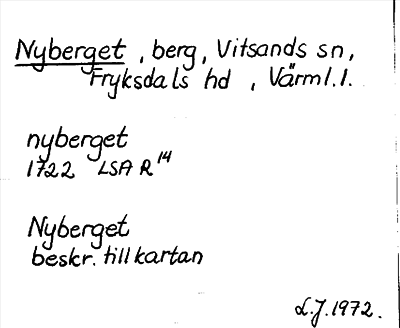 Nyberget, berg, Vitsands sn,
Fryksdals hd, Värml.l.
nyberget
1722 LSA R 14
Nyberget
beskr. till kartan
L.J. 1972.